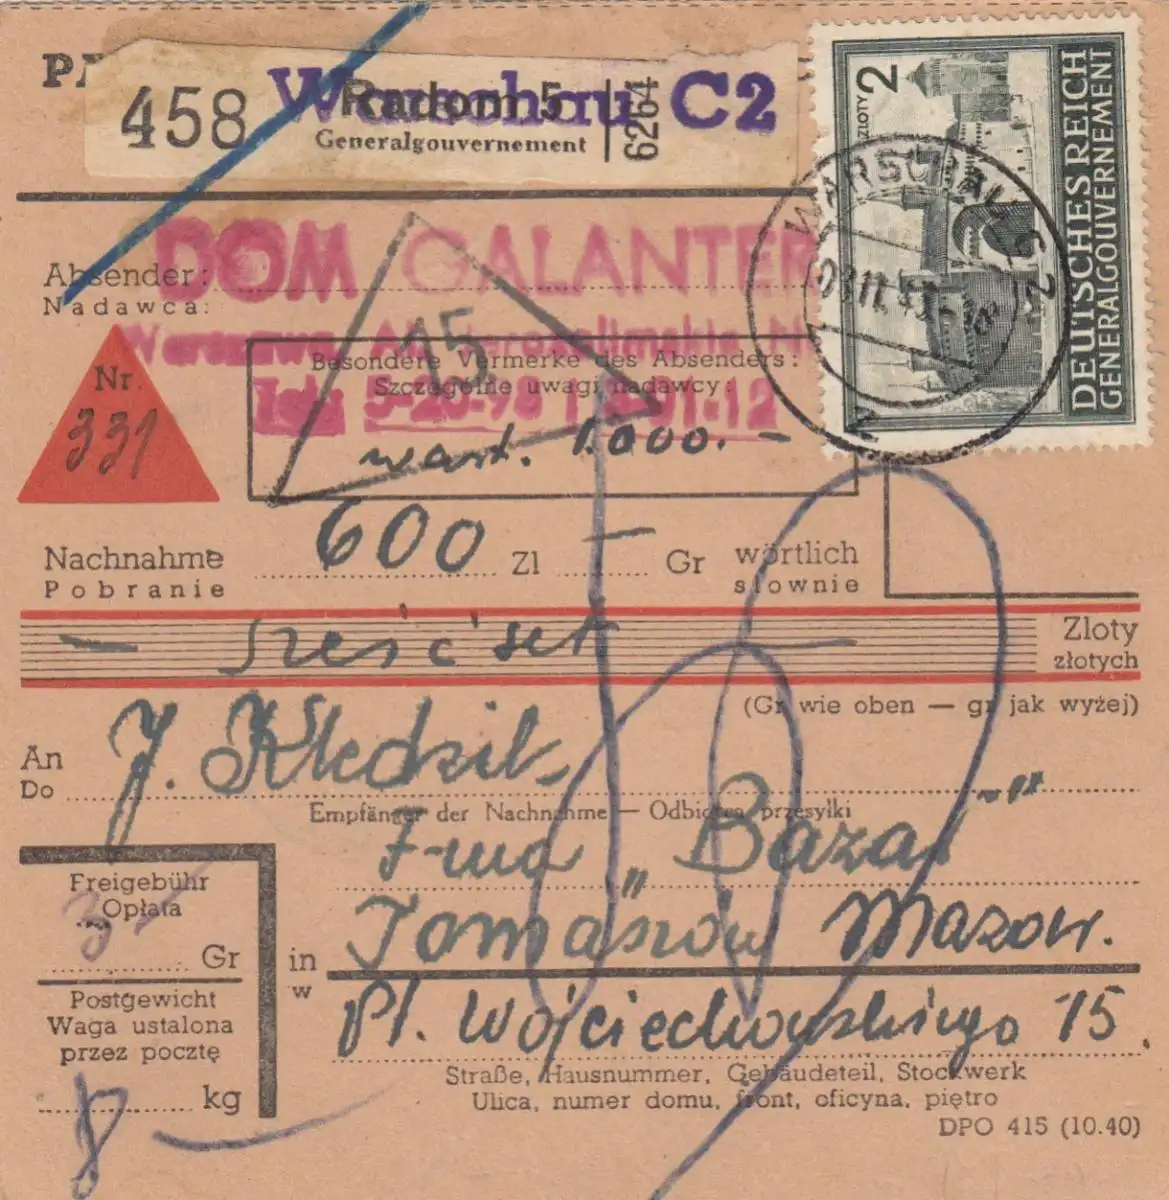 458
Radom 5
Warschau C2
Generalgouvernement
6264
2
ZLOTY
DEUTSCHES REICH
GENERALGOUVERNEMENT
WARSCHAU C 2
DOM GALANTER
Absender:
Nadawca:
Warszawa,
15
Nr.
331
Besondere Vermerke des Absenders:
Szczególne uwagi nadawcy:
wart. 1.000.-
Nachnahme 600 Zl — Gr wörtlich
Pobranie słownie
— sześćset — Zloty
złotych
(Gr wie oben — gr jak wyżej)
An J. Kłedzik
Do
Empfänger der Nachnahme — Odbiorca przesyłki
F-ma „Bazar"
Freigebühr
Opłata
3
Gr
in Tomaszów Mazow.
w
Postgewicht
Waga ustalona
przez pocztę
8 kg
Pl. Wojciechowskiego 15.
Straße, Hausnummer, Gebäudeteil, Stockwerk
Ulica, numer domu, front, oficyna, piętro
DPO 415 (10.40)